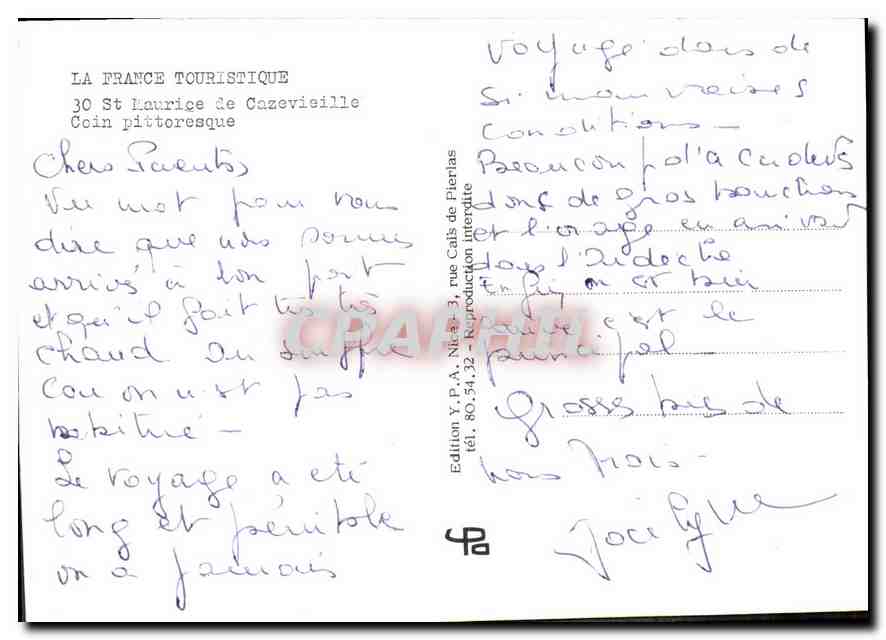 LA FRANCE TOURISTIQUE
30 St Maurice de Cazevieille
Coin pittoresque
Chers Parents,
Un mot pour vous
dire que nous sommes
arrivés à bon port
et qu'il fait très très
chaud on souffre
car on n'est pas
habitué -
Le voyage a été
long et pénible
on a jamais
voyagé dans de
si mauvaises
conditions -
Beaucoup d'accidents
donc de gros bouchons
et l'orage en arrivant
dans l'Ardèche
Enfin on est bien
arrivé c'est le
principal -
Grosses bises de
nous trois -
Jocelyne
Edition Y.P.A. Nice - 3, rue Caïs de Pierlas
tél. 80.54.32 - Reproduction interdite
CPAPHIL